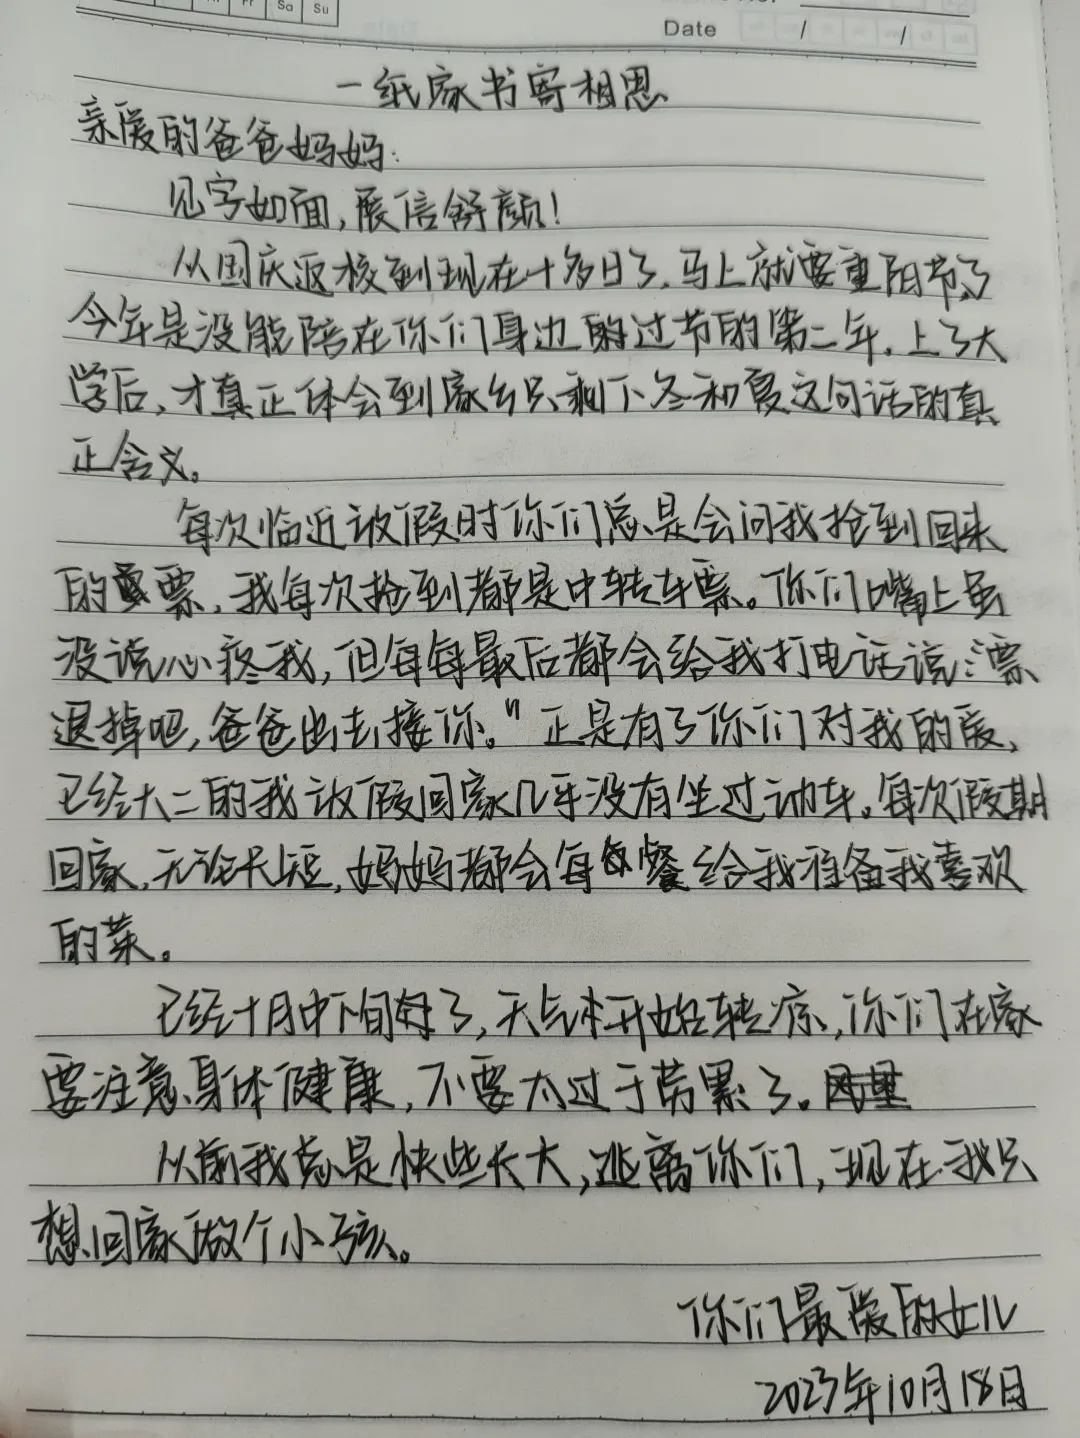 Fr Sa Su
Date / /
一纸家书寄相思
亲爱的爸爸妈妈:
见字如面,展信舒颜!
从国庆返校到现在十多日了,马上就要重阳节了
今年是没能陪在你们身边的过节的第二年。上了大
学后,才真正体会到家乡只剩下冬和夏这句话的真
正含义。
每次临近放假时你们总是会问我抢到回来
的票,我每次抢到都是中转车票。你们嘴上虽
没说心疼我,但每每最后都会给我打电话说:票
退掉吧,爸爸出去接你。"正是有了你们对我的爱,
已经大二的我放假回家几乎没有坐过动车。每次假期
回家,无论长短,妈妈都会每餐给我准备我喜欢
的菜。
已经十月中下旬了,天气开始转凉,你们在家
要注意身体健康,不要太过于劳累了。
从前我总是快些长大,逃离你们,现在我只
想回家做个小孩。
你们最爱的女儿
2023年10月18日